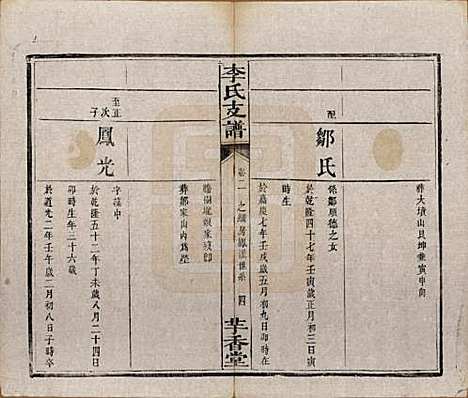 葬大墳山艮坤兼寅申向
配
鄒氏
係鄒順德之女
於乾隆四十七年壬寅歲正月初三日寅
時生
於嘉慶七年壬戌歲五月初九日卯時在
李氏支譜
卷二
四
芋香堂
葬鄒家山內為塋
至正
次子
鳳光
字漢中
於乾隆五十二年丁未歲八月二十四日
卯時生年三十六歲
於道光二年壬午歲二月初八日子時卒